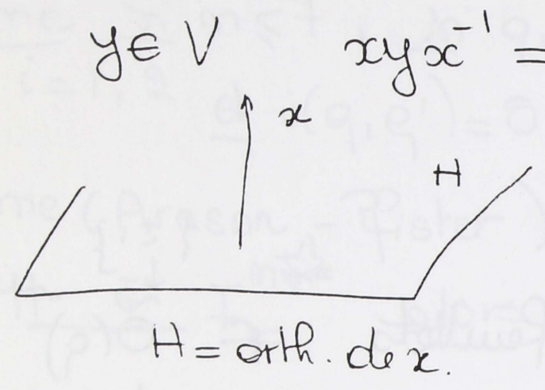 y ∈ V xyx⁻¹ =
x
H
H = orth. de x.